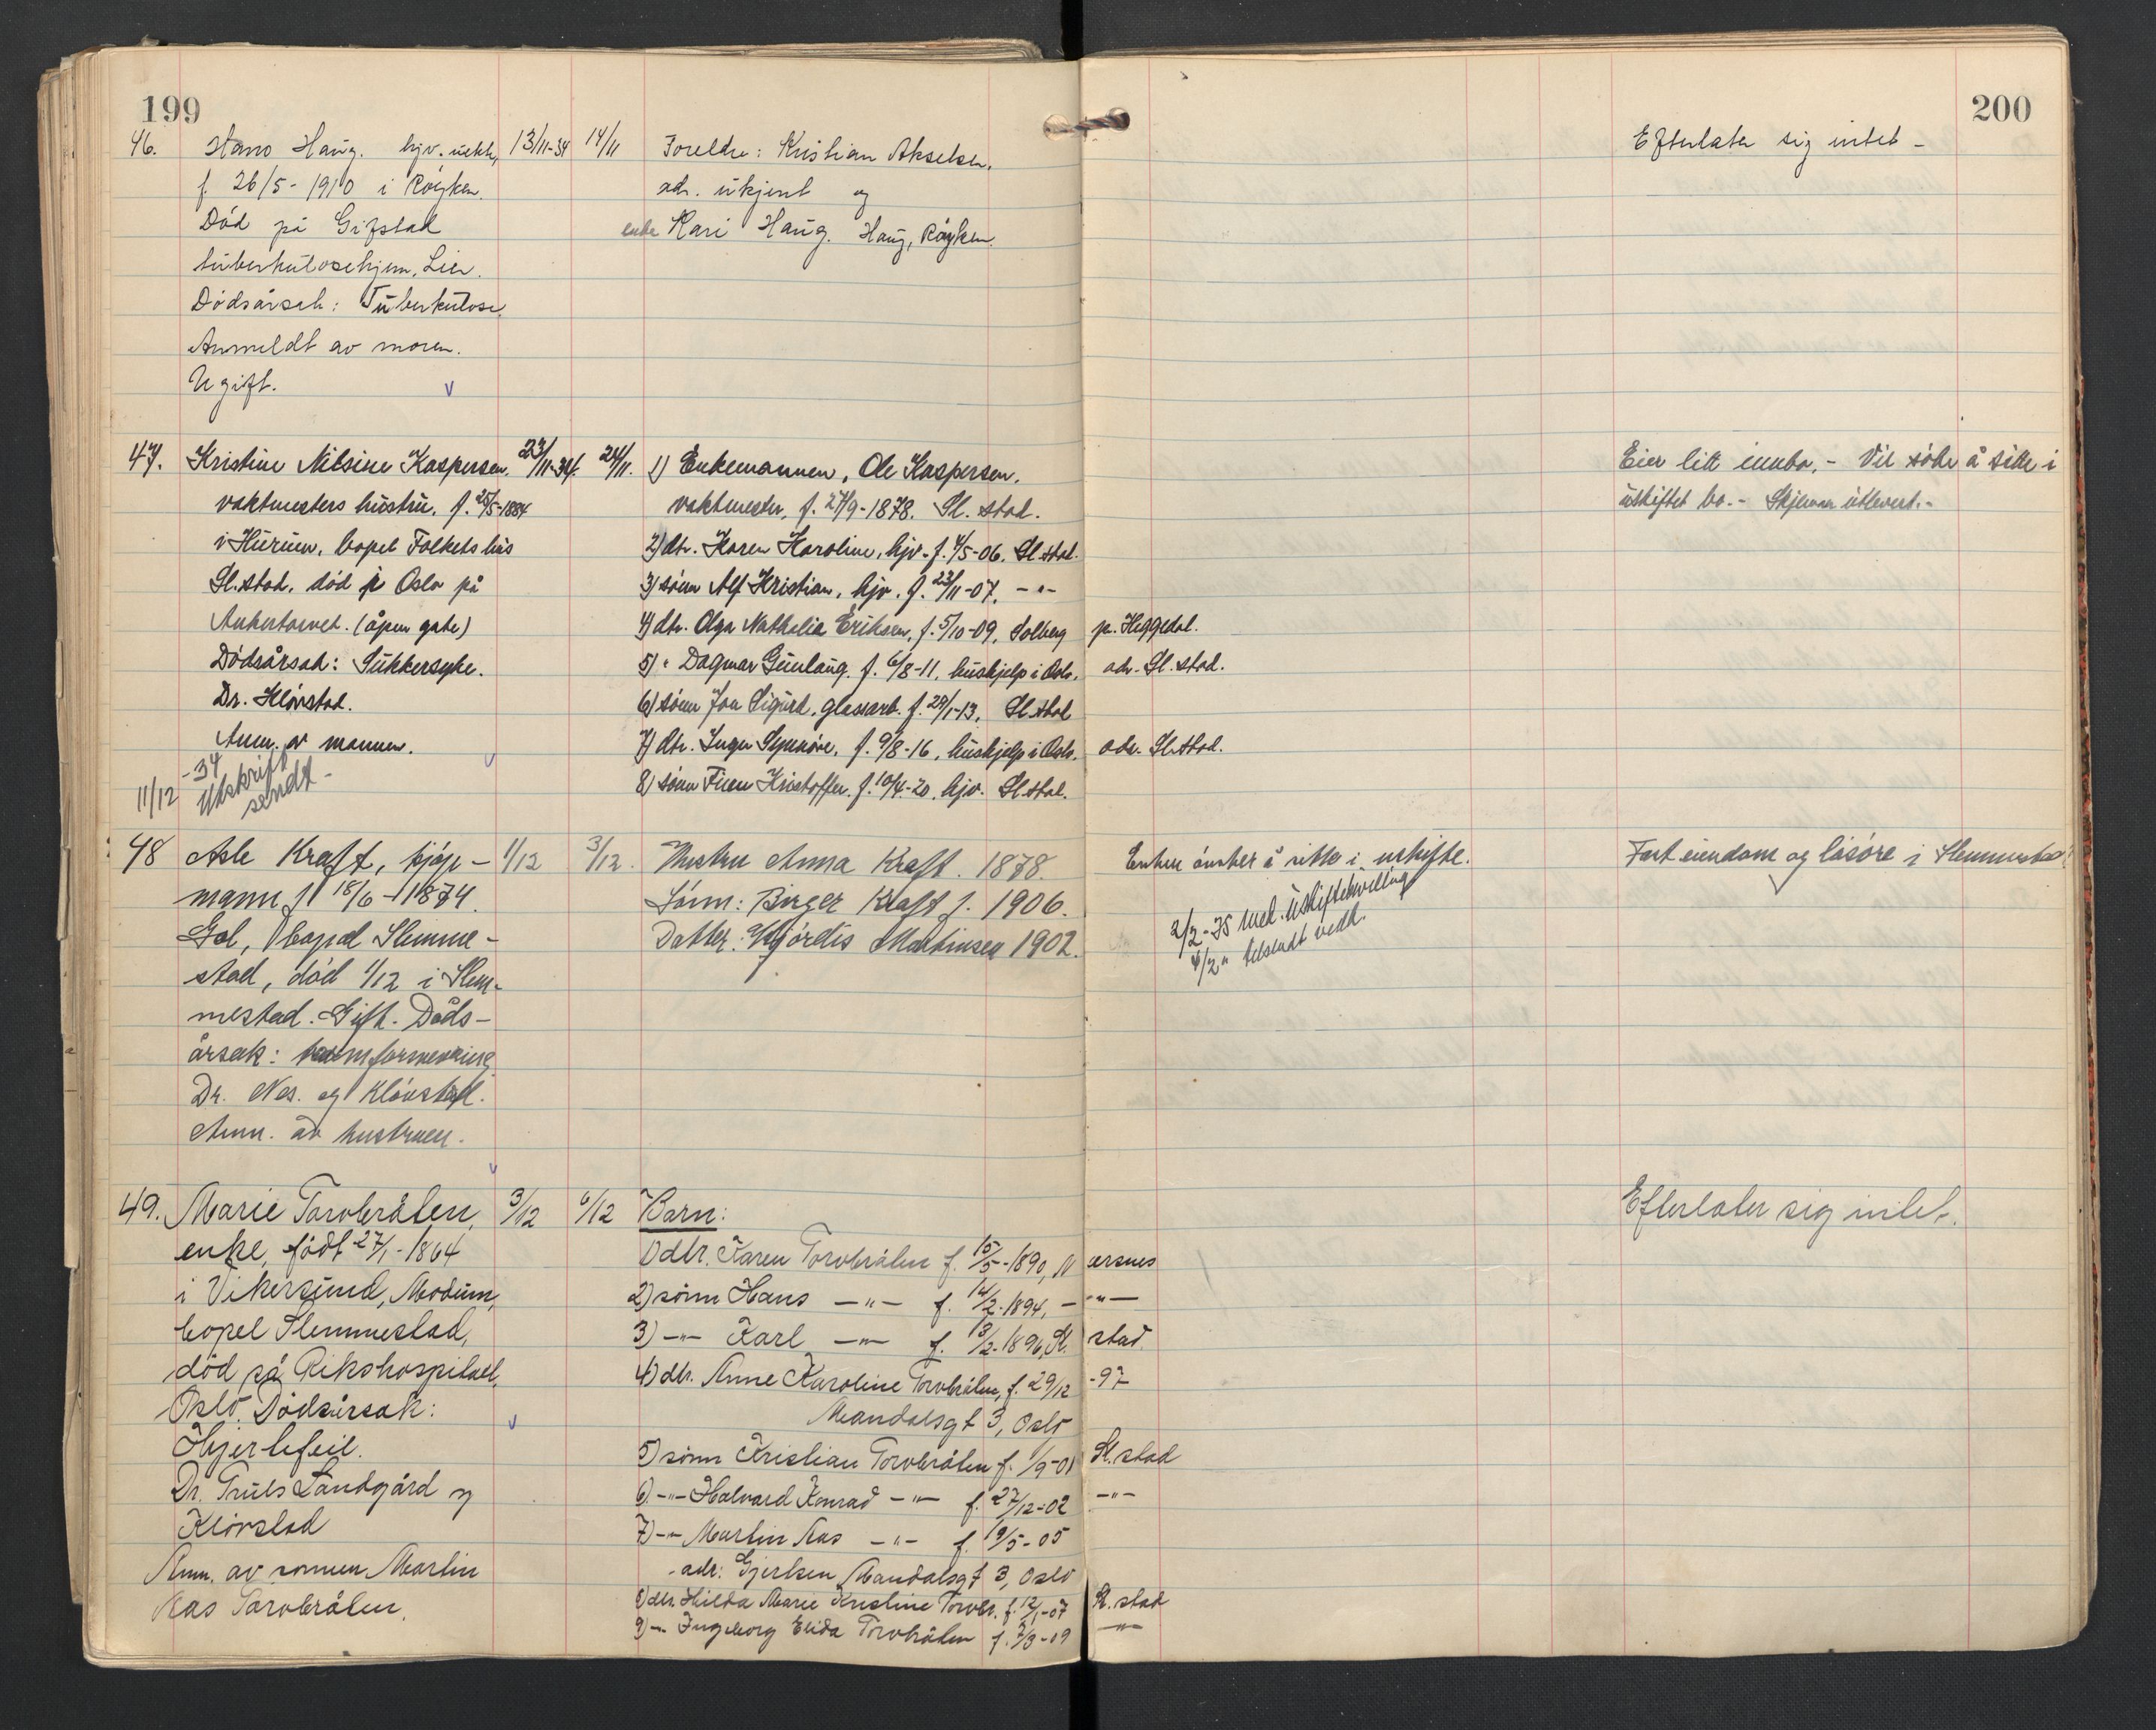 199
200
46. Hans Haug. hjv. 13/11-34 14/11 Foreldre: Kristian Akselsen, Efterlater sig intet -
f 26/5 - 1910 i Røyken. adr. ukjent og
Død på Gifstad enke Kari Haug. Haug, Røyken.
tuberkulosehjem, Lier.
Dødsårsak: Tuberkulose.
Anmeldt av moren.
Ugift.
47. Kristine Nilsine Kaspersen. 23/11-34. 24/11. 1) Enkemannen, Ole Kaspersen, Eier litt innbo, - Vil søke å sitte i
vaktmesters hustru, f. 25/5-1884 vaktmester, f. 27/9-1878. Sl.stad. uskiftet bo. - Skjema utlevert. -
i Hurum, bopel Folkets hus 2) dtr. Karen Karoline, hjv. f. 4/5-06. Sl.stad.
Sl.stad, død i Oslo på 3) sønn Alf Kristian, hjv. f. 23/11-07. -"-
Ankertorvet. (åpen gate) 4) dtr. Olga Nathalia Eriksen, f. 5/10-09, Solberg pr. Heggedal.
Dødsårsak: Sukkersyke. 5) " Dagmar Gunlaug. f. 6/8-11, hushjelp i Oslo, adr. Sl.stad.
Dr. Kløvstad. 6) sønn Jon Sigurd, glassarb. f. 29/1-13, Sl.stad
Anm. av mannen. 7) dtr. Inger Synnøve, f. 9/8-16, hushjelp i Oslo. adr. Sl.stad.
11/12 -34 Utskrift sendt - 8) sønn Finn Kristoffer. f. 10/4-20, hjv. Sl.stad.
48 Asle Kraft, kjøp- 1/12 3/12. Hustru Anna Kraft. 1878. Enken ønsker å sitte i uskifte. Fast eiendom og løsøre i Slemmestad
mann f 18/6-1874. Sønn: Birger Kraft f. 1906. 2/2-35 med. uskiftebevilling
Gol, bopel Slemme- Datter: Hjørdis Martinsen 1902. 4/2 " tilsendt vedk.
stad, død 1/12 i Slem-
mestad. Gift. Døds-
årsak:
Dr. Nes. og Kløvstad.
Anm. av hustruen.
49. Marie Torvbråten, 3/12 6/12 Barn: Efterlater sig intet.
enke, født 27/1-1864 1) dtr. Karen Torvbråten f. 15/5-1890, Nærsnes
i Vikersund, Modum, 2) sønn Hans -"- f. 14/2-1894, -"-
bopel Slemmestad, 3) -"- Karl -"- f. 13/2-1896, Sl.stad.
død på Rikshospitalet, 4) dtr. Anne Karoline Torvbråten, f. 29/12-97
Oslo. Dødsårsak: Mandalsgt 3, Oslo
Hjertefeil. 5) sønn Kristian Torvbråten f. 1/9-01 Sl.stad
Dr. Truls Landgård og 6) -"- Halvard Konrad -"- f. 27/12-02 -"-
Kløvstad 7) -"- Martin Aas -"- f. 19/5-05
Anm. av sønnen Martin adr: Gjertsen, Mandalsgt 3, Oslo
Aas Torvbråten. 8) dtr. Hilda Marie Kristine Torvbr. f. 12/1-07 Sl.stad
9) -"- Ingeborg Elida Torvbråten f. 7/3-09 -"-